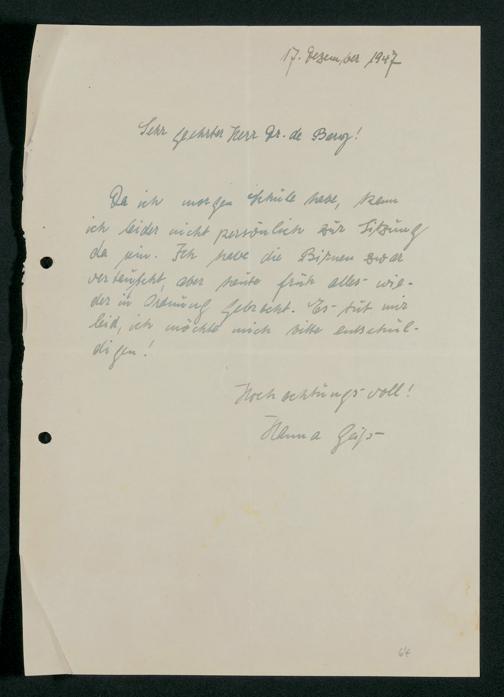 17. Dezember 1947
Sehr geehrter Herr Dr. de Barry!
Da ich morgen Schule habe, kann
ich leider nicht persönlich zur Sitzung
da sein. Ich habe die Birnen zwar
vertauscht, aber heute früh alles wie-
der in Ordnung gebracht. Es tut mir
leid, ich möchte mich bitte entschul-
digen!
Hochachtungsvoll!
Hanna
64